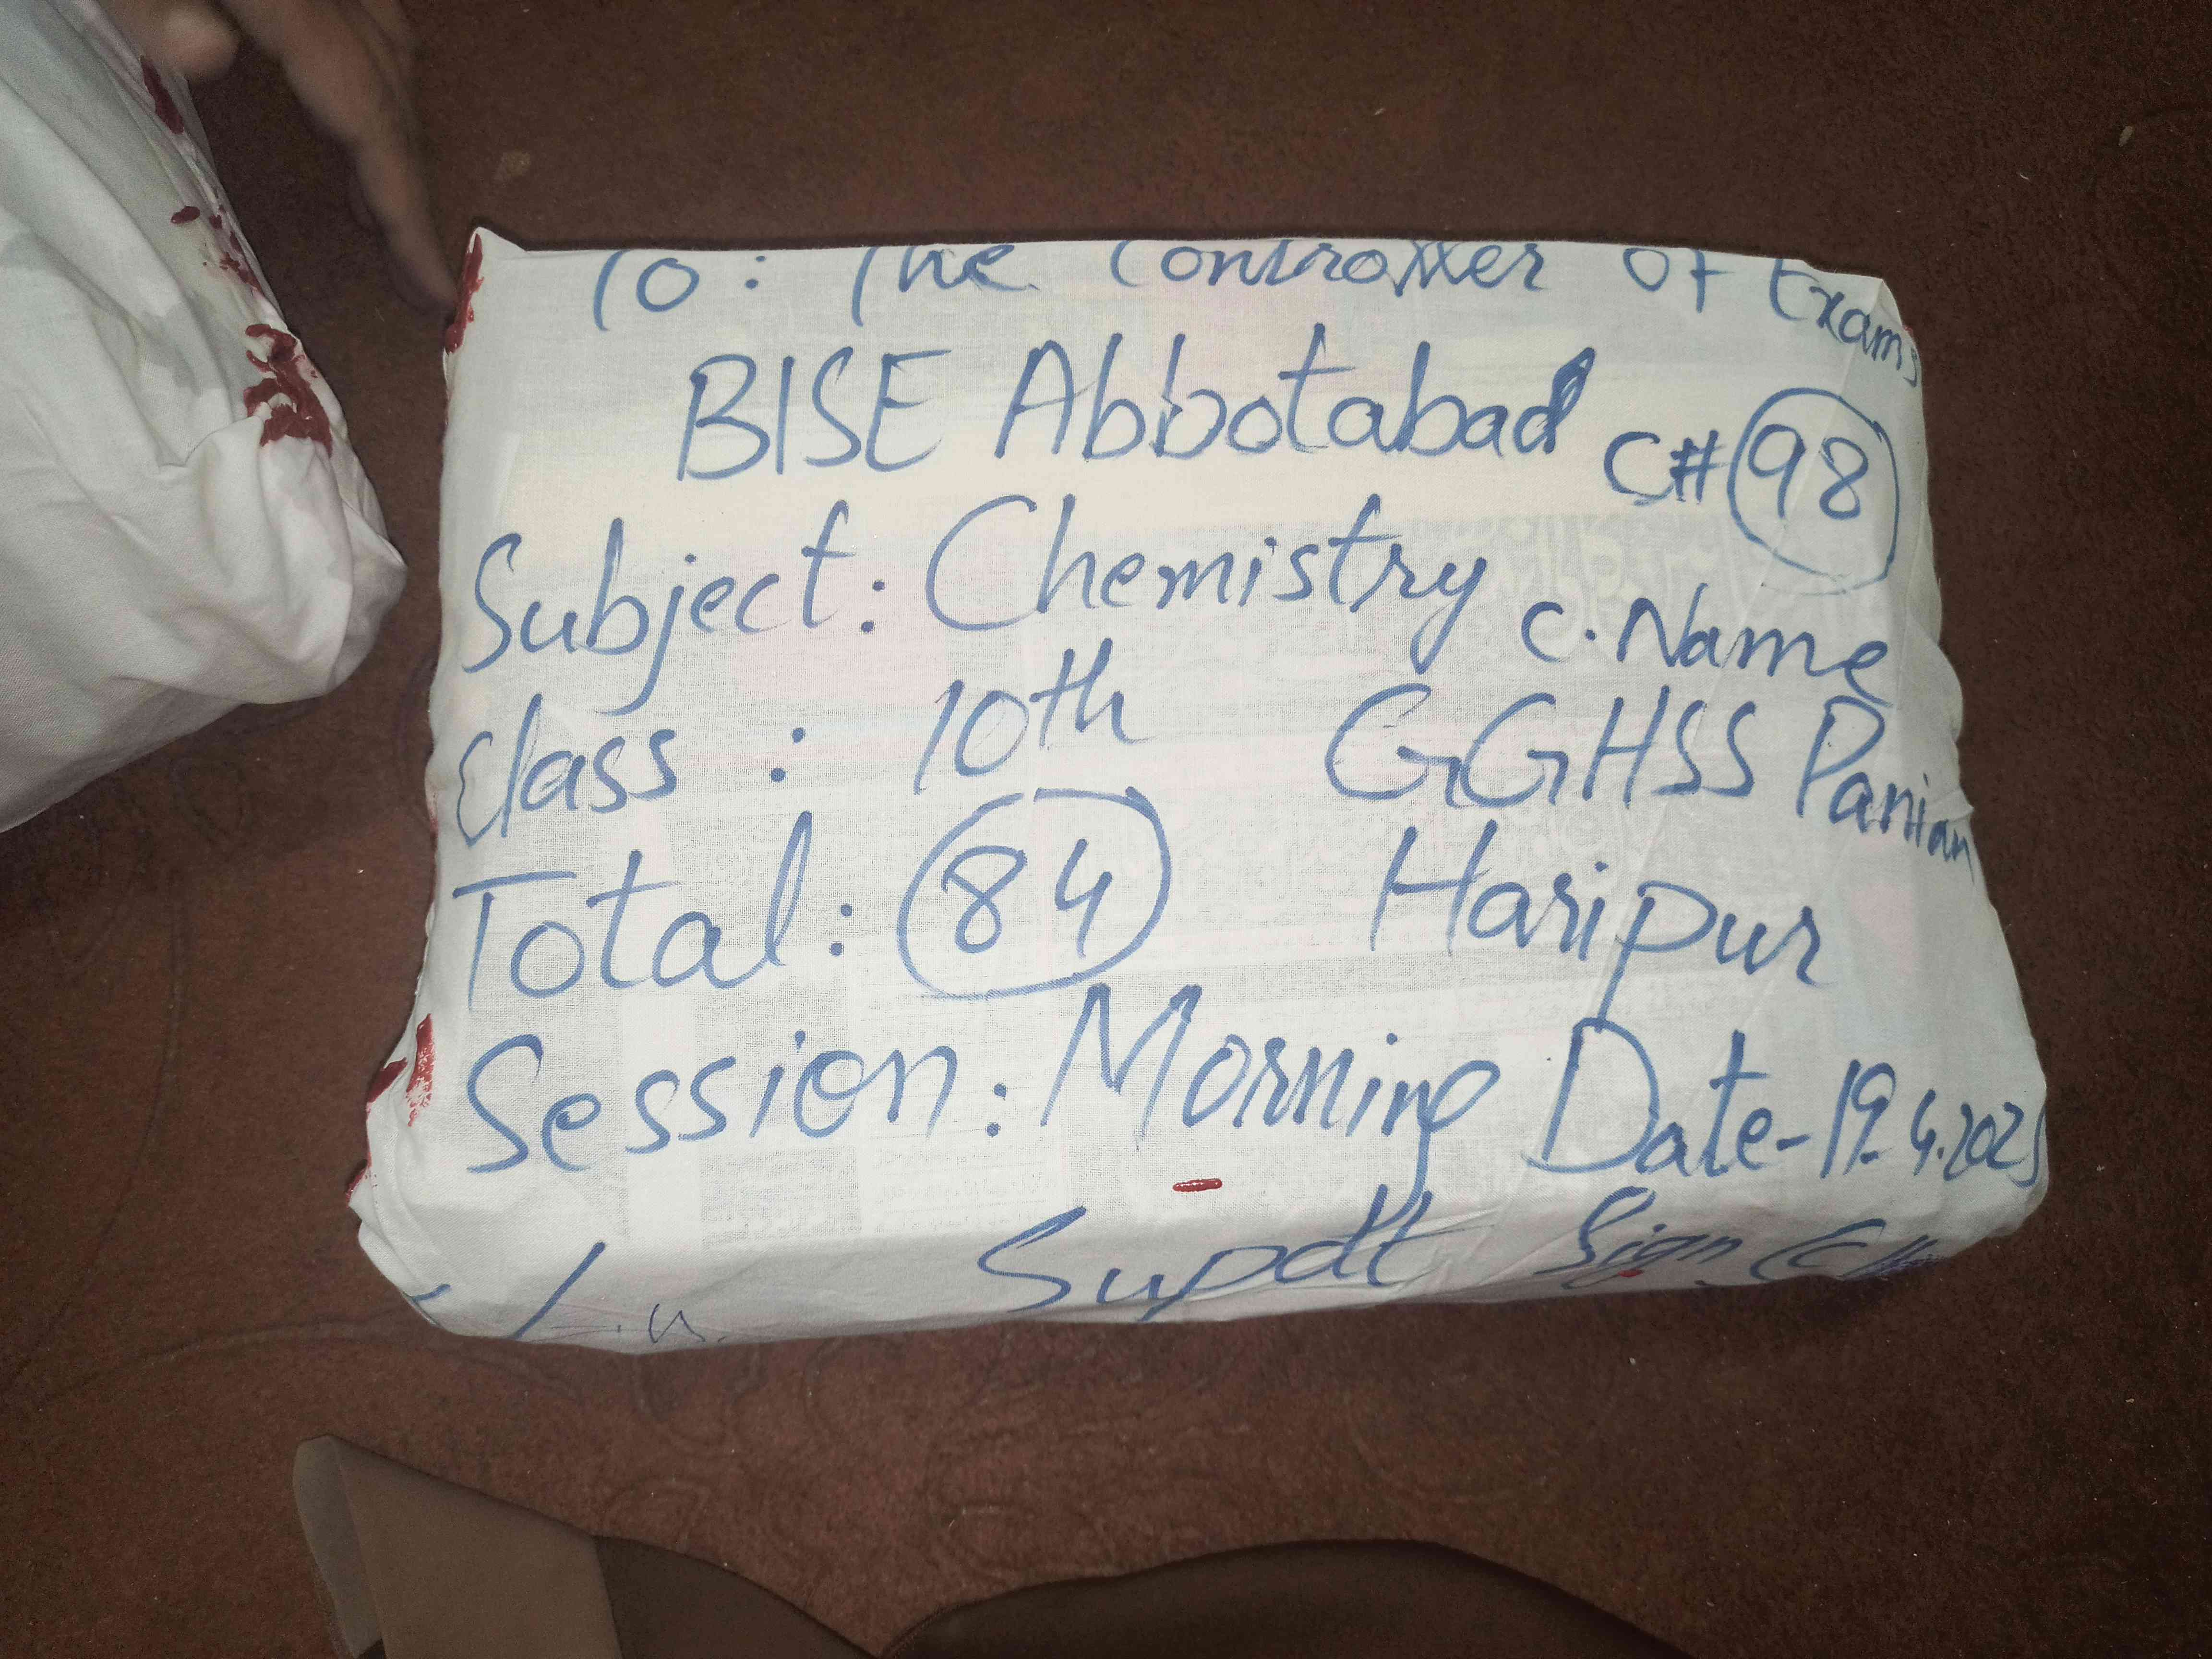 To: The Controller Of Exams
BISE Abbotabad
C# 98
Subject: Chemistry
C. Name
Class : 10th
GGHSS Panian
Total: 84
Haripur
Session: Morning
Date-19.4.2025
Supdt Sign